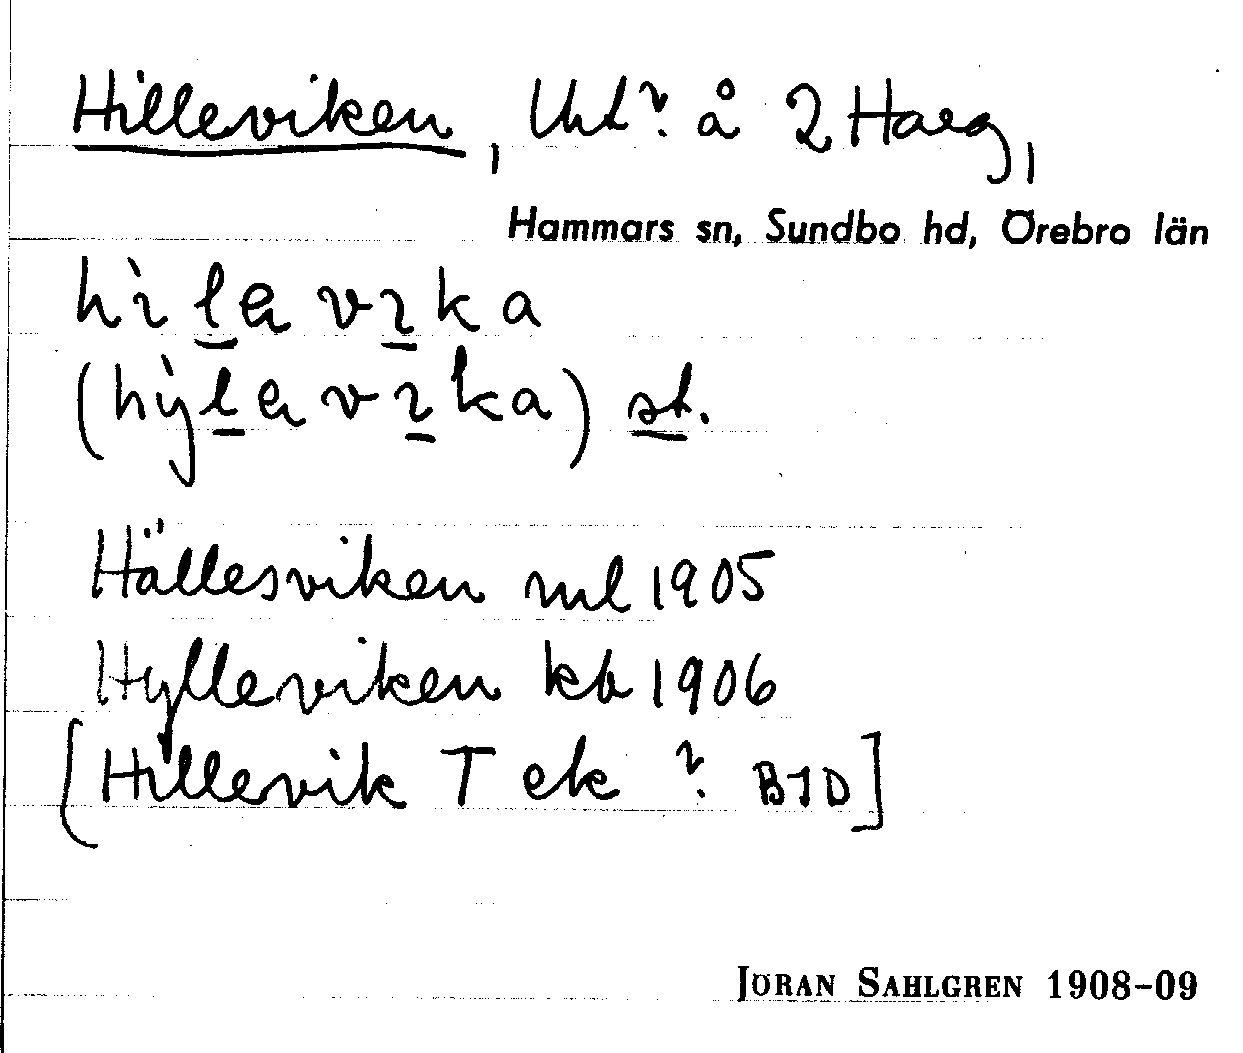 Hilleviken, Uht? å 2 Harg,
Hammars sn, Sundbo hd, Örebro län
hìlavıka
(hỳlavıka) st.
Hällesviken ml 1905
Hylleviken kb 1906
[Hillevik T ek ? BJD]
JÖRAN SAHLGREN 1908-09